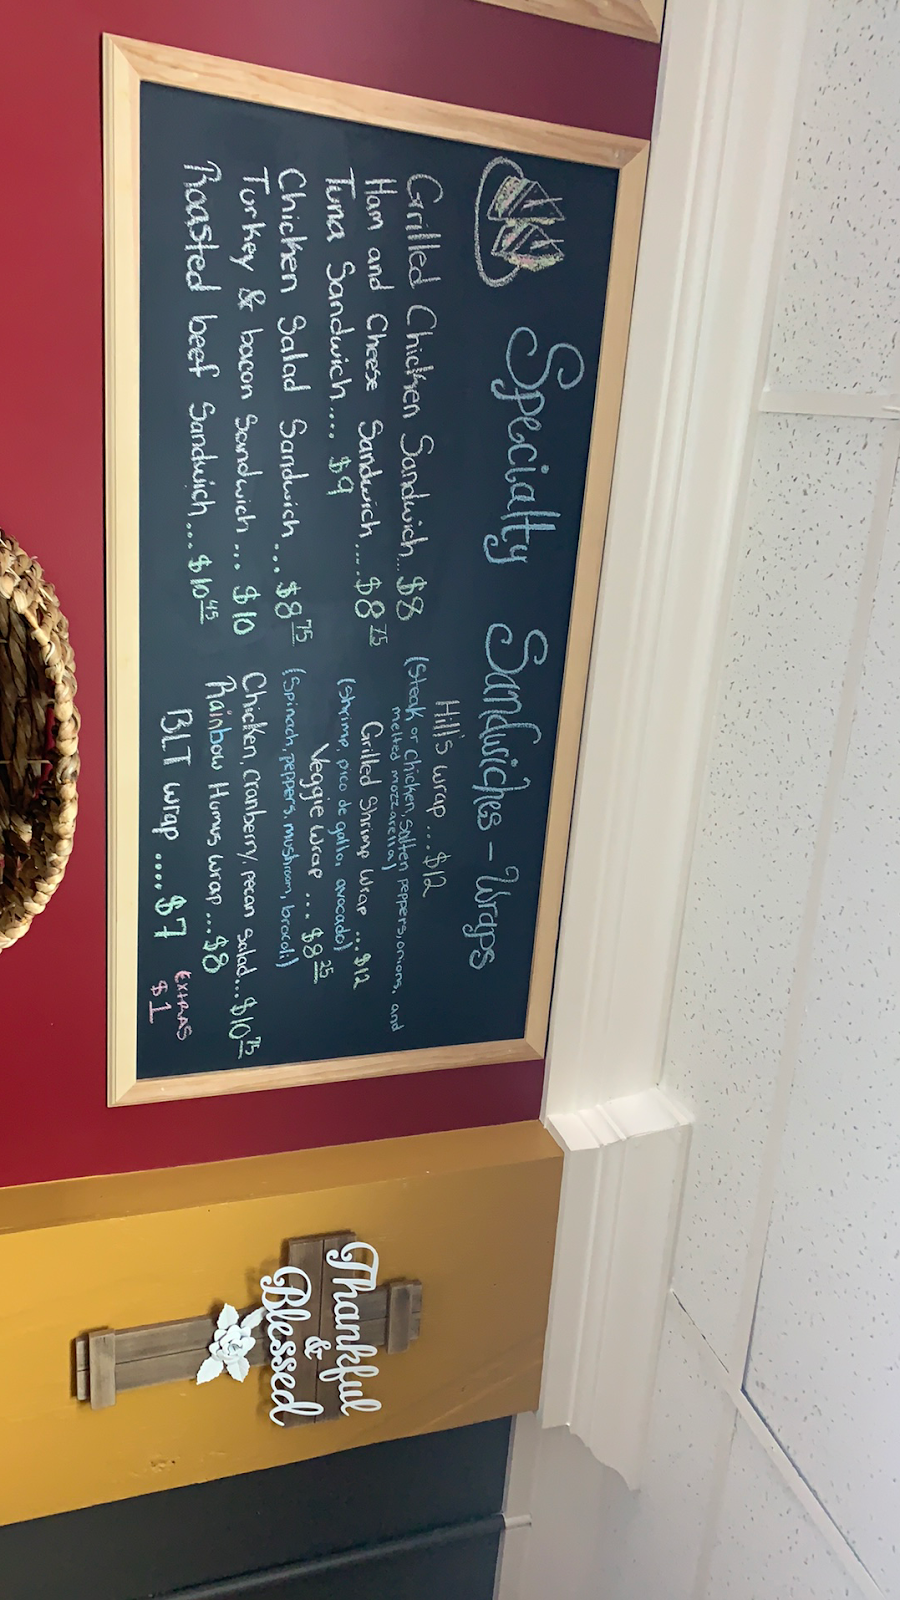 Specialty Sandwiches - Wraps
Grilled Chicken Sandwich... $8
Ham and Cheese Sandwich.... $8 75
Tuna Sandwich.... $9
Chicken Salad Sandwich... $8 75
Turkey & bacon Sandwich... $10
Roasted beef Sandwich... $10 45
Hill's wrap ...$12
(Steak or chicken, salten peppers, onions, and
melted mozzarella)
Grilled Shrimp Wrap ...$12
(Shrimp, pico de gallo, avocado)
Veggie wrap ... $8 25
(Spinach, peppers, mushroom, brocoli)
Chicken, cranberry, pecan Salad...$10 75
Rainbow Humus wrap...$8
BLT wrap .... $7
EXTRAS
$1
Thankful
&
Blessed